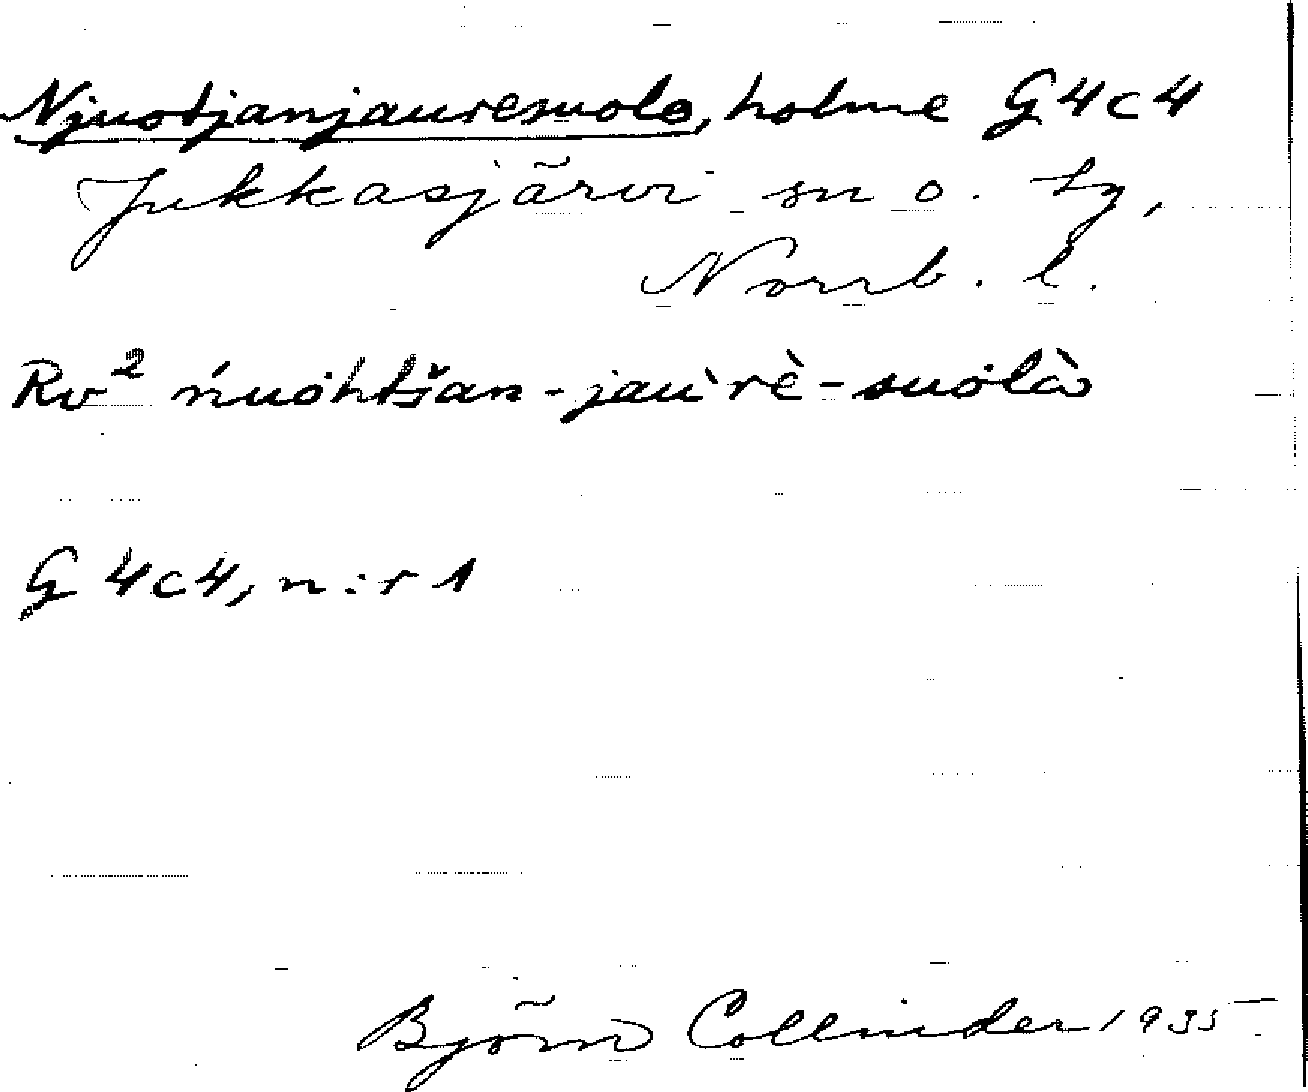 Njuotjanjauresuolo, holme G4c4
Jukkasjärvi sn o. tg,
Norrb. l.
Rv² ńuòhtšan-jau̇rè-suòlȯ
G 4c4, n:r 1
Björn Collinder 1935